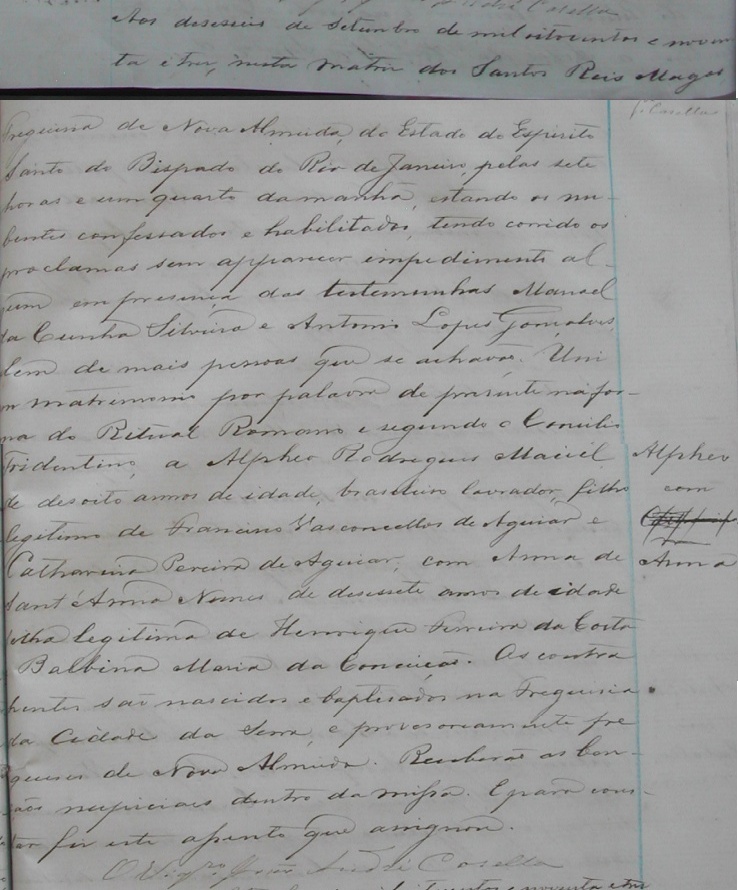 João André Casella
Aos deseseis de Setembro de mil oitocentos e noven
ta e tres, nesta matriz dos Santos Reis Magos
freguesia de Nova Almeida, do Estado do Espirito
Santo do Bispado do Rio de Janeiro, pelas sete
horas e um quarto da manhã, estando os nu-
bentes confessados e habilitados, tendo corrido os
proclamas sem apparecer impedimento al-
gum em presença das testemunhas Manoel
da Cunha Silveira e Antonio Lopes Gonçalves,
lem de mais pessoas que se achavão. Uni
em matremonio por palavra de presente na for-
ma do Ritual Romano e segundo o Concilio
Tridentino, a Alpheo Rodrigues Maciel
de desoito annos de idade, brasileiro lavrador, filho
legitimo de Francisco Vasconcellos de Aguiar e
Catharina Pereira de Aguiar, com Anna de
Sant'Anna Nunes de desessete annos de idade
filha legitima de Henrique Ferreira da Costa
Balbina Maria da Conceição. Os contra
hentes são nascidos e baptisados na Freguesia
da Cidade da Serra, e provisoriamente fre
gueses de Nova Almeida. Receberão as ben-
çãos nupiciaes dentro da missa. E para cons-
tar fiz este assento que assignou.
O Vigrº João André Casella
e noventa e tres
fr. Casella
Alpheo
com
Anna